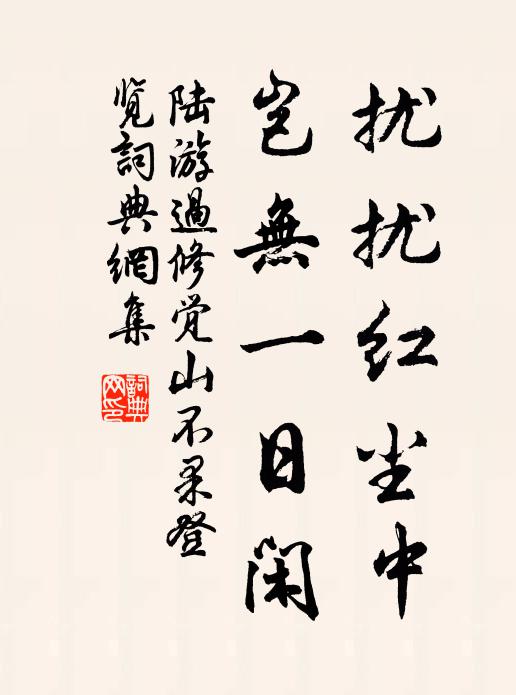 扰扰红尘中
岂無一日閑
陆游過修觉山不果登
览詞典網集
詞典
网印